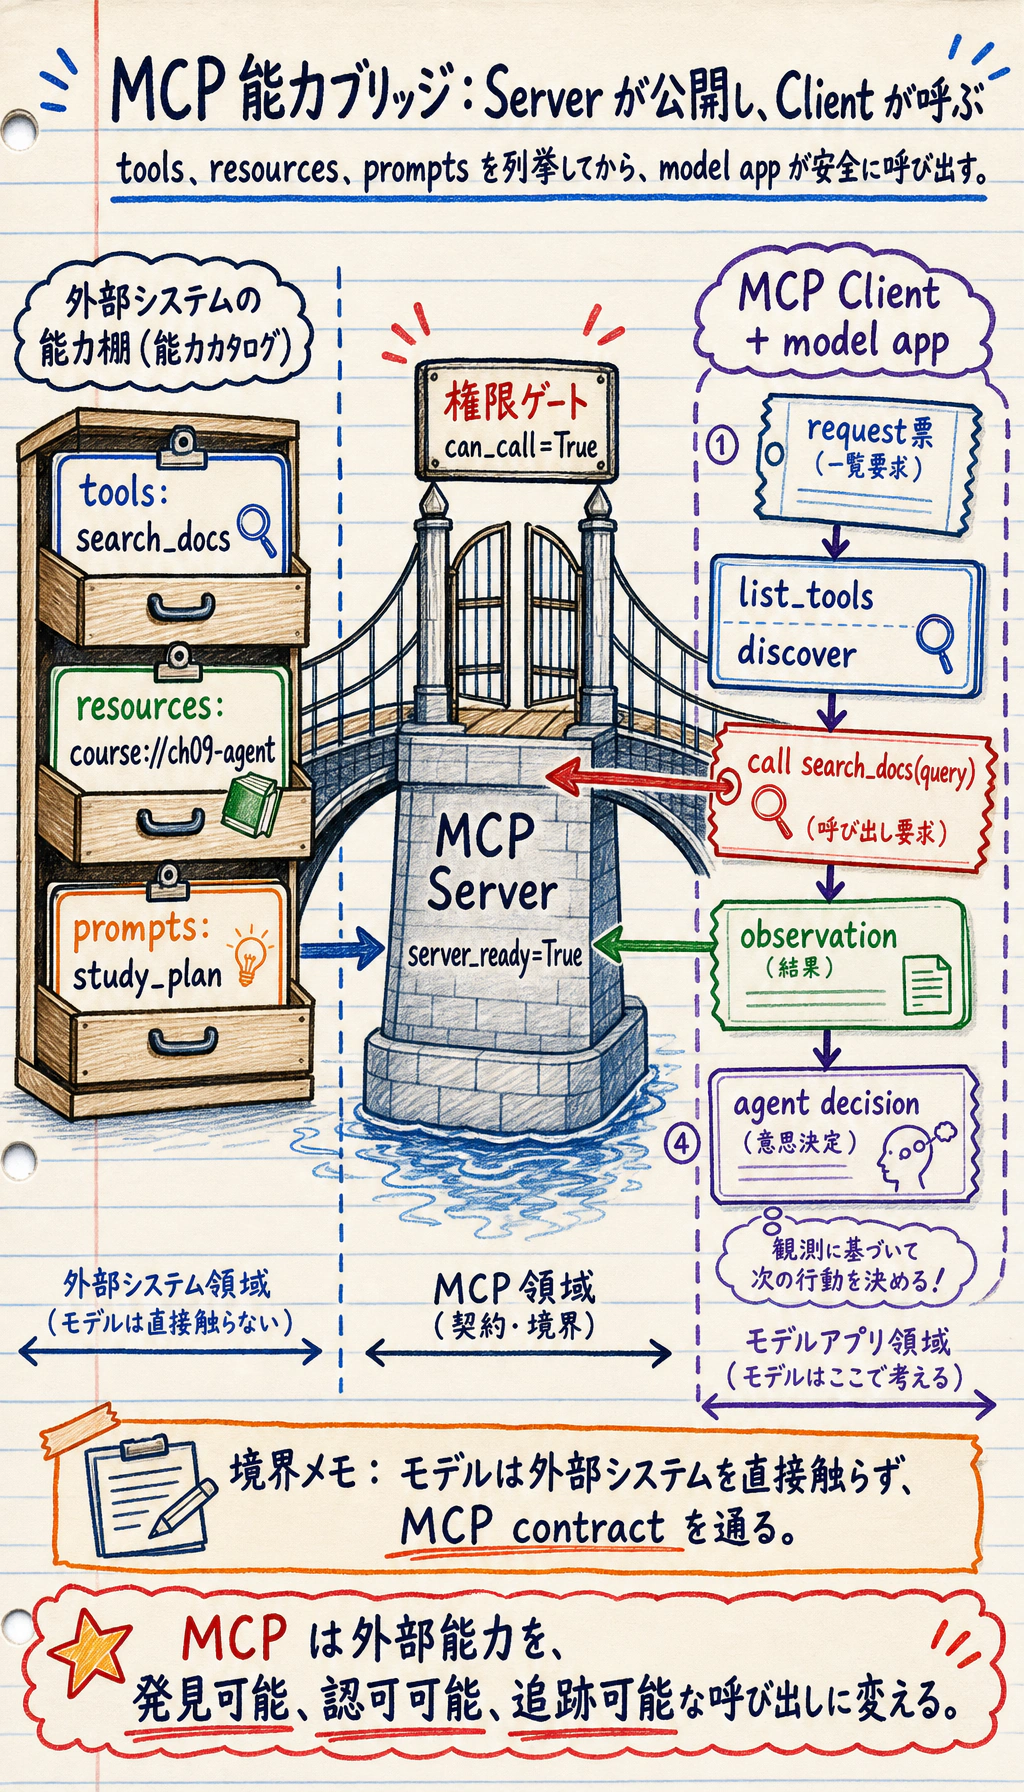 MCP 能力ブリッジ：Server が公開し、Client が呼ぶ
tools、resources、prompts を列挙してから、model app が安全に呼び出す。
外部システムの
能力棚（能力カタログ）
tools:
search_docs
resources:
course://ch09-agent
prompts:
study_plan
権限ゲート
can_call=True
MCP
Server
server_ready=True
MCP Client
+ model app
①
request票
（一覧要求）
list_tools
discover
call search_docs(query)
（呼び出し要求）
observation
（結果）
④
agent decision
（意思決定）
観測に基づいて
次の行動を決める！
外部システム領域
（モデルは直接触らない）
MCP 領域
（契約・境界）
モデルアプリ領域
（モデルはここで考える）
境界メモ： モデルは外部システムを直接触らず、
MCP contract を通る。
MCP は外部能力を、
発見可能、認可可能、追跡可能な呼び出しに変える。